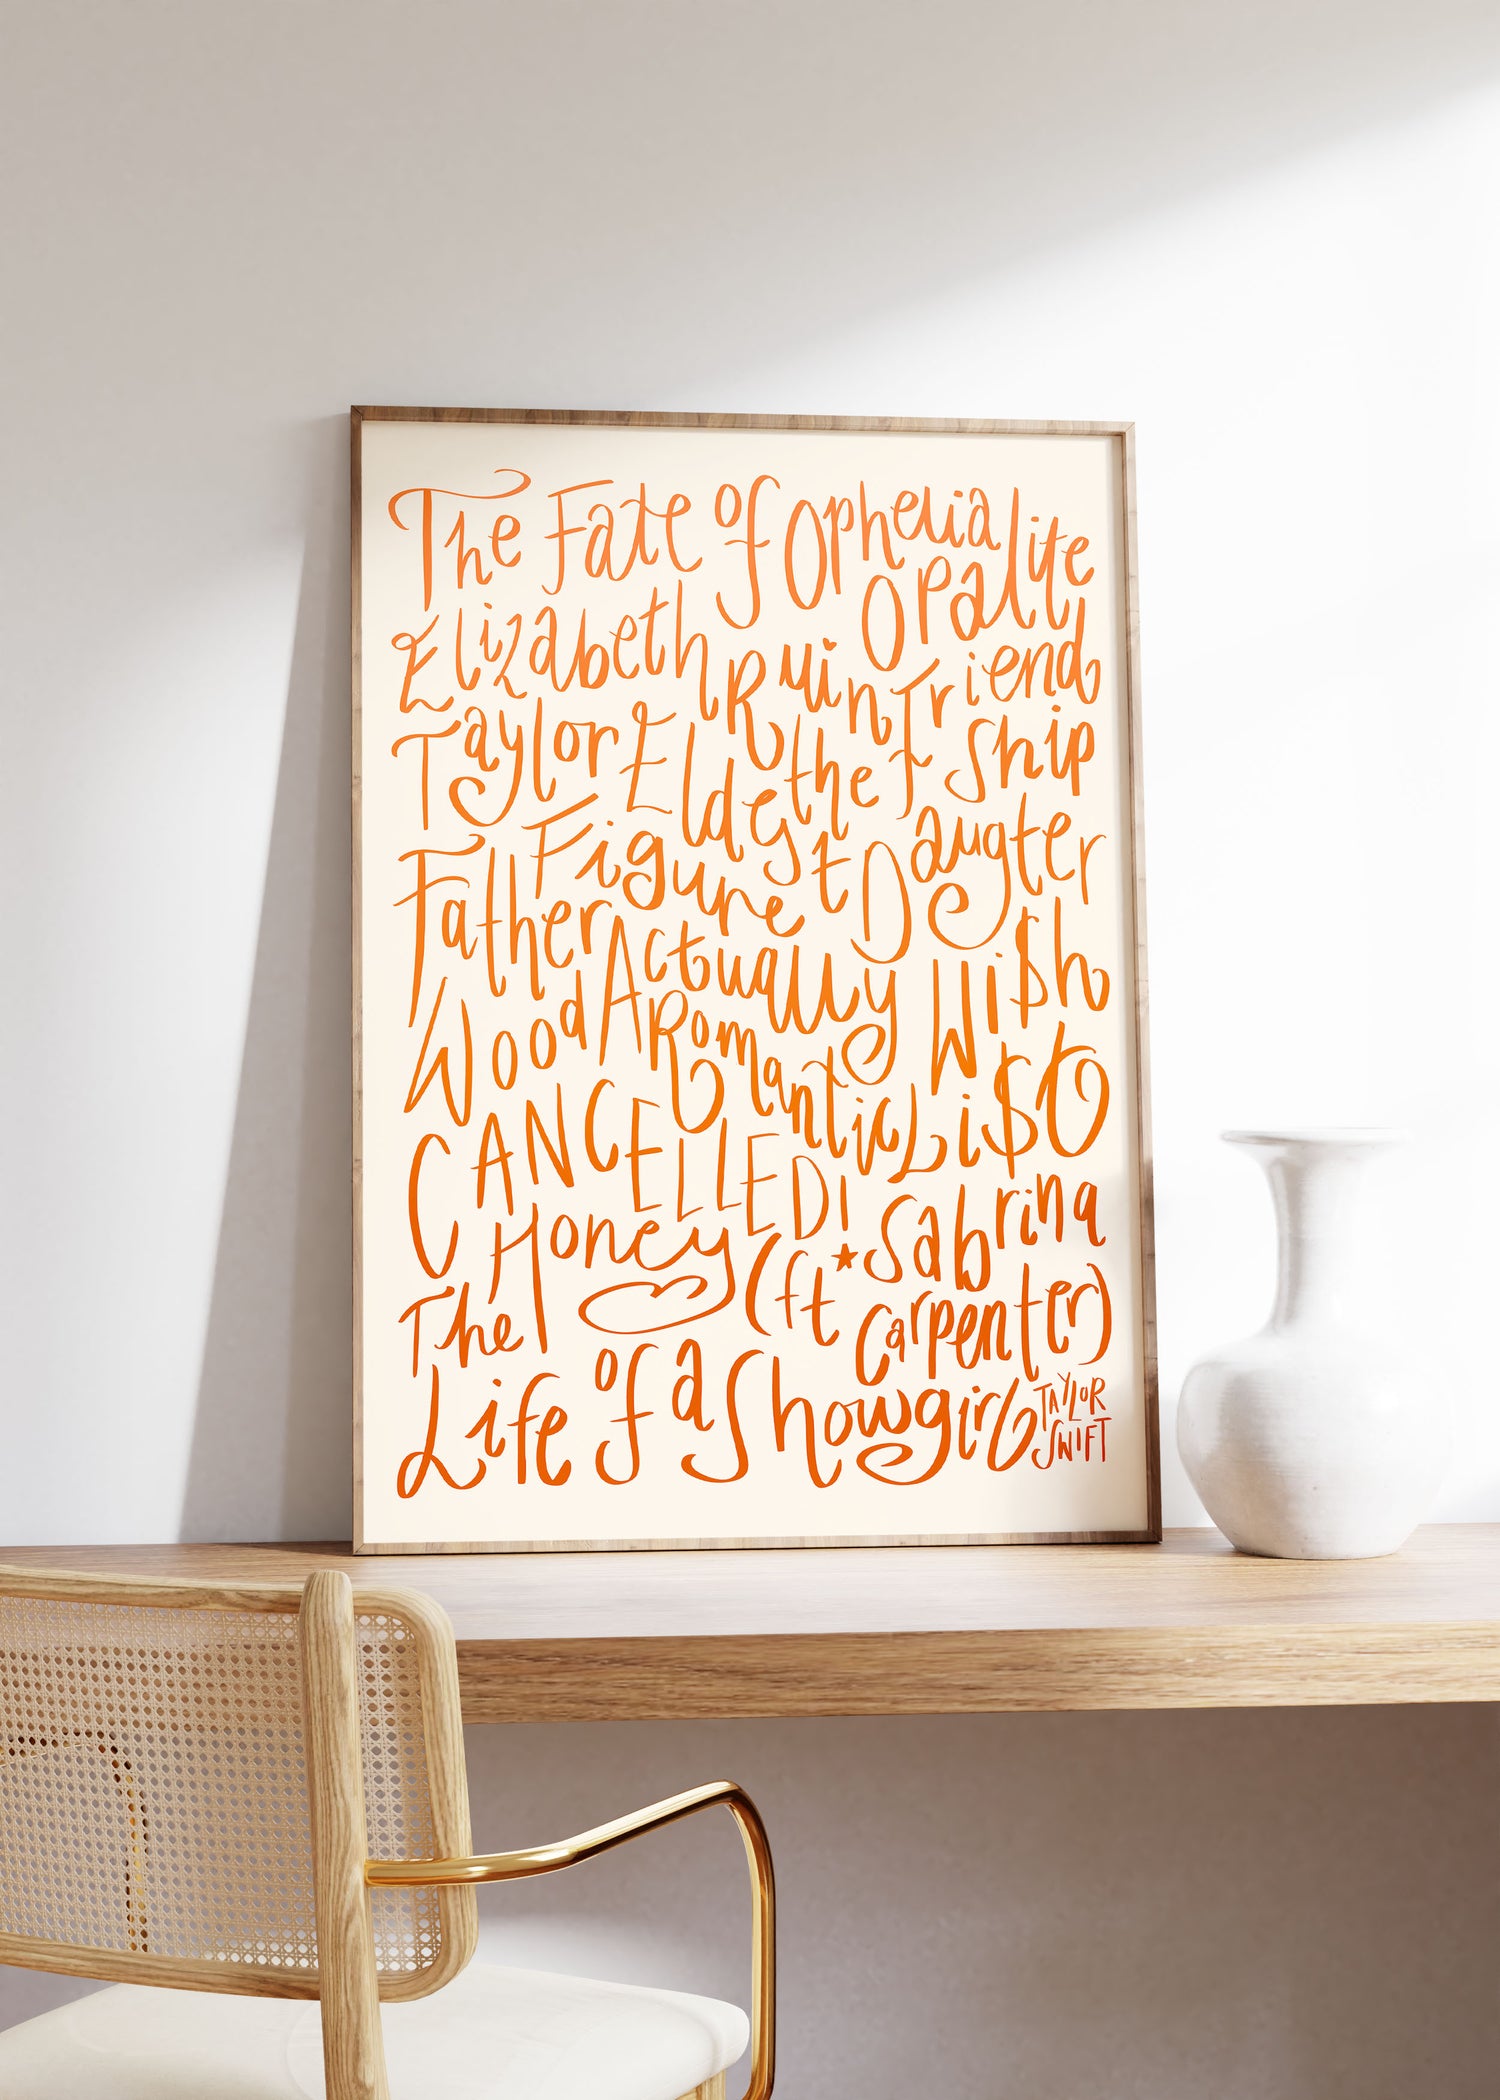 The Fate of Ophelia
Opalite
Elizabeth
Taylor
Ruin the Friend
Ship
Eldest Daugter
Father
Figure
Actually
Romantic
Wood
Wi$h
Li$t
CANCELLED!
Honey
(ft★Sabrina
Carpenter)
The
Life of a Showgirl
TAYLOR
SWIFT